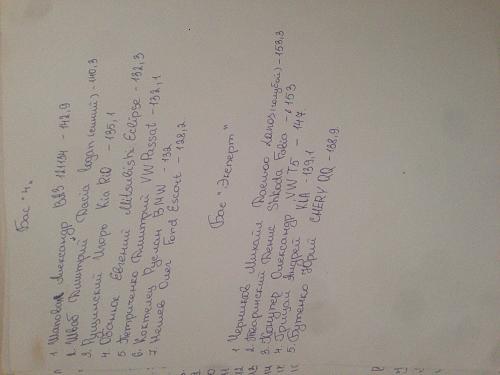 Бас "4"
1 Шаповал Александр ВАЗ 21134 - 142,9
2. Швab Дмитрий Dacia Logan (синий) - 140,3
3. Рущинский Игорь Kia Rio - 135,1
4. Евгений Mitsubishi Eclipse - 132,3
5 Петриченко Дмитрий VW Passat - 132,1
6. Коктелец Руслан BMW - 132
7 Нешев Олег Ford Escort - 128,2
Бас "Эксперт"
1 Черников Михаил Daewoo Lanos (голубой) - 153,3
2. Денис Shkoda Fabia - 153
3. Александр VW T5 - 147
4. Грицай Андрей KIA - 139,1
5. Бутенко Юрий CHERY QQ - 138,9